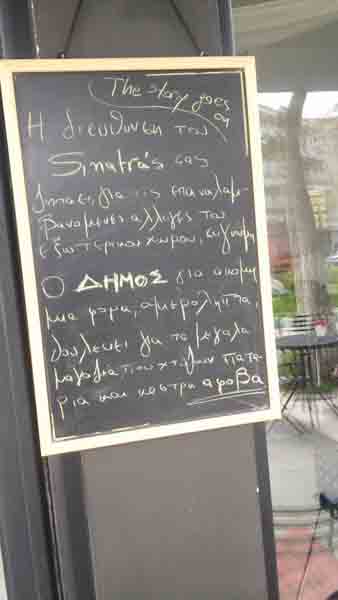 The story goes
on
Η διευθυνση του
Sinatra's σας
ζηταει, για τις επαναλαμ-
βανομενες αλλαγες του
εξωτερικου χωρου, συγνωμη
Ο ΔΗΜΟΣ για ακομη
μια φορα, αμεροληπτα,
δουλευει για τα μεγαλα
μαγαζια που χτιζουν πατα-
ρια και καστρα αφοβα